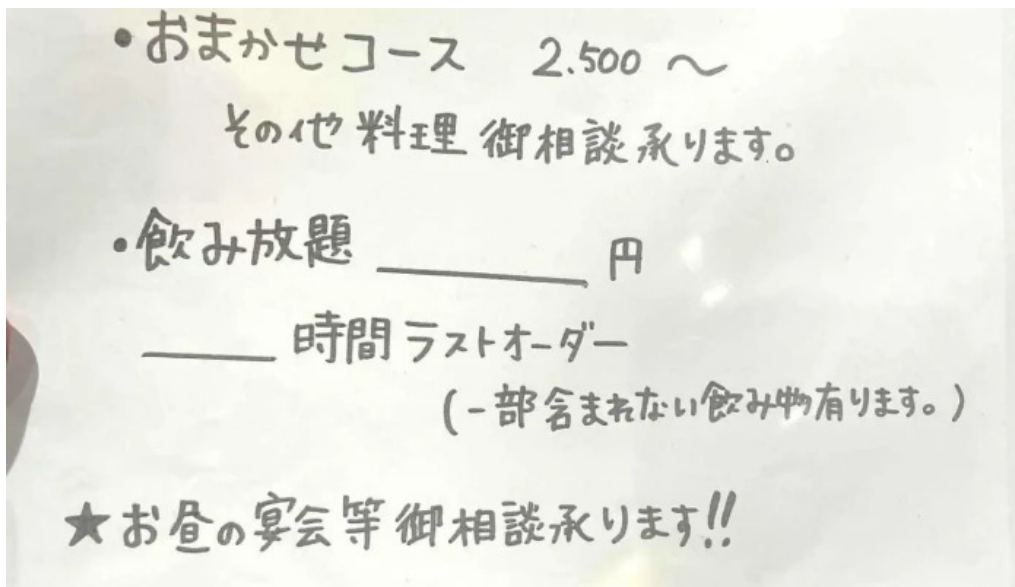 ・おまかせコース 2.500 〜
その他 料理 御相談承ります。
・飲み放題 ______ 円
____ 時間 ラストオーダー
(一部含まれない飲み物有ります。)
★お昼の宴会等御相談承ります!!